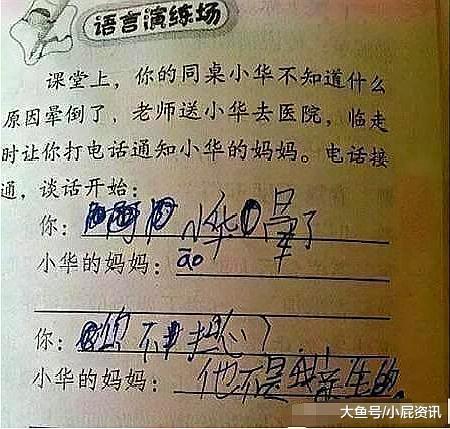 语言演练场
课堂上，你的同桌小华不知道什么
原因晕倒了，老师送小华去医院，临走
时让你打电话通知小华的妈妈。电话接
通，谈话开始：
你：小华晕了
小华的妈妈：āo
你：你不担心？
小华的妈妈：他不是我亲生的。
大鱼号/小屁资讯